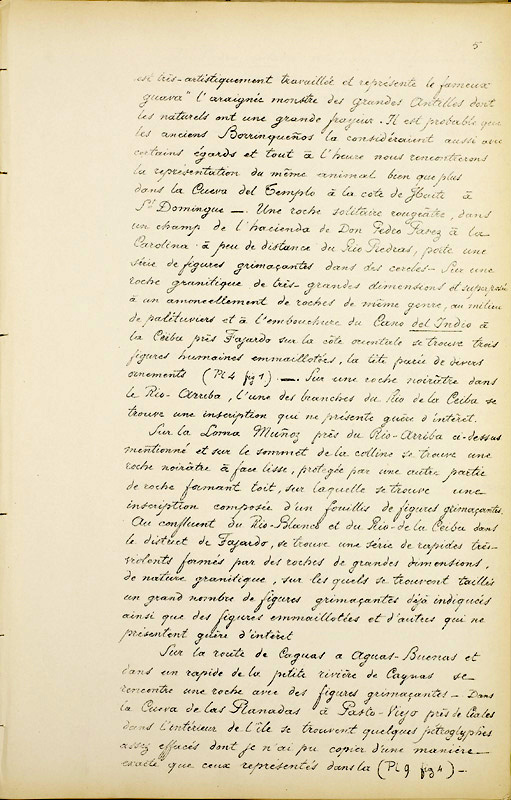 5
est très-artistiquement travaillée et représente le fameux
guava" l'araignée monstre des grandes Antilles dont
les naturels ont une grande frayeur. Il est probable que
les anciens Borrinqueños la considéraient aussi avec
certains égards et tout à l'heure nous rencontrerons
la représentation du même animal bien que plus
dans la Cueva del Templo à la cote de Haiti à
St Domingue —. Une roche solitaire rougeâtre, dans
un champ de l'hacienda de Don Pedro Pavez à la
Carolina à peu de distance du Rio Piedras, porte une
série de figures grimaçantes dans des cercles — Sur une
roche granitique de très-grandes dimensions et superposée
à un amoncellement de roches de même genre, au milieu
de palétuviers et à l'embouchure du Cano del Indio à
la Ceiba près Fajardo sur la côte orientale se trouve trois
figures humaines emmaillotées, la tête parée de divers
ornements (Pl 4 fig 1). —. Sur une roche noirâtre dans
le Rio-Arriba, l'une des branches du Rio de la Ceiba se
trouve une inscription qui ne présente guère d'intéret.
Sur la Loma Muñoz près du Rio-Arriba ci-dessus
mentionné et sur le sommet de la colline se trouve une
roche noirâtre à face lisse, protégée par une autre partie
de roche formant toit, sur laquelle se trouve une
inscription composée d'un fouillis de figures grimaçantes.
Au confluent du Rio-Blanco et du Rio-de la Ceiba dans
le district de Fajardo, se trouve une série de rapides très-
violents formés par des roches de grandes dimensions,
de nature granitique, sur les quels se trouvent taillés
un grand nombre de figures grimaçantes déjà indiquées
ainsi que des figures emmaillotées et d'autres qui ne
présentent guère d'intéret
Sur la route de Caguas a Aguas-Buenas et
dans un rapide de la petite rivière de Caguas se
rencontre une roche avec des figures grimaçantes — Dans
la Cueva de las Planadas à Pasto-Viejo près de Ciales
dans l'intérieur de l'île se trouvent quelques pétroglyphes
assez effacés dont je n'ai pu copier d'une manière
exacte que ceux représentés dans la (Pl 9 fig 4) —